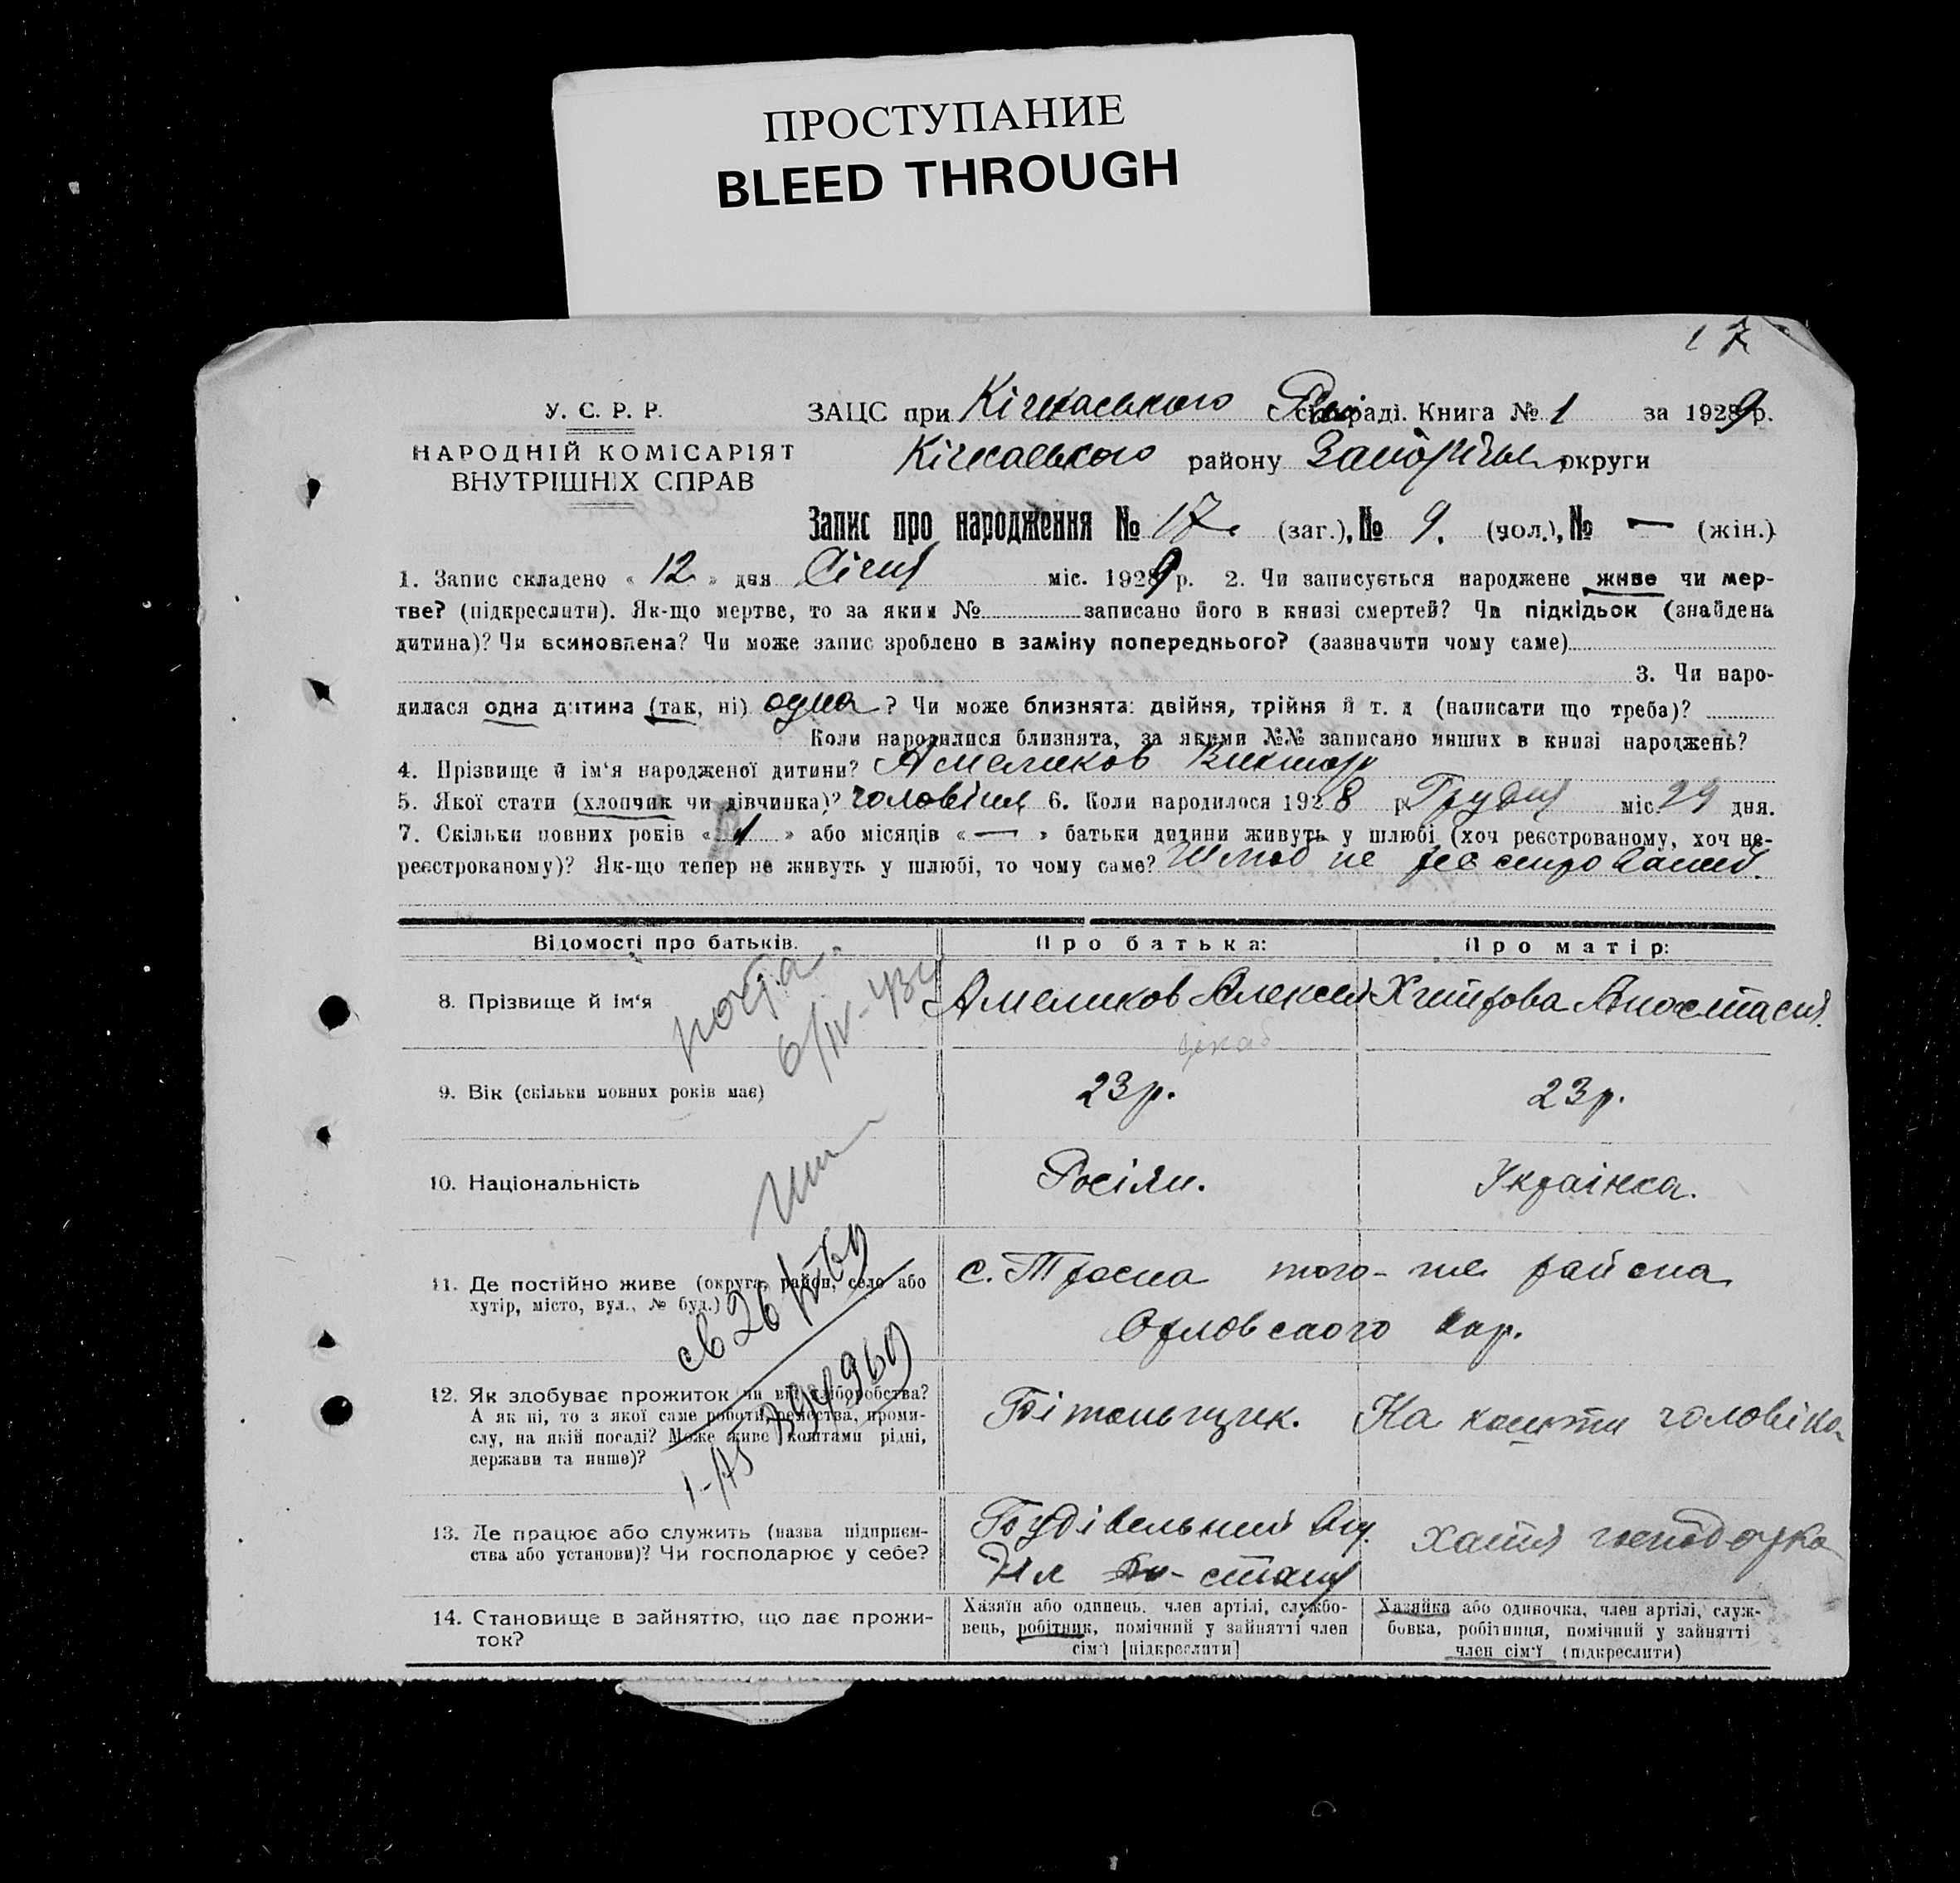 ПРОСТУПАНИЕ
BLEED THROUGH
17
У. С. Р. Р.
НАРОДНІЙ КОМІСАРІЯТ
ВНУТРІШНІХ СПРАВ
ЗАЦС при Кічкаського сільраді. Книга № 1 за 1929 р.
Кічкаського району округи
Запис про народження № 17 (заг.), № 9. (чол.), № — (жін.)
1. Запис складено « 12 » дня Січня міс. 1929 р. 2. Чи записується народжене живе чи мер-
тве? (підкреслити). Як-що мертве, то за яким № записано його в книзі смертей? Чи підкідьок (знайдена
дитина)? Чи всиновлена? Чи може запис зроблено в заміну попереднього? (зазначити чому саме)
3. Чи наро-
дилася одна дитина (так, ні) одна ? Чи може близнята: двійня, трійня й т. д (написати що треба)?
Коли народилися близнята, за якими №№ записано инших в книзі народжень?
4. Прізвище й ім'я народженої дитини? Амеликов Виктор
5. Якої стати (хлопчик чи дівчинка)? чоловіча 6. Коли народилося 1928 р. Грудня міс. 29 дня.
7. Скільки повних років « 1 » або місяців « — » батьки дитини живуть у шлюбі (хоч реєстрованому, хоч не-
реєстрованому)? Як-що тепер не живуть у шлюбі, то чому саме? Шлюб не
Відомості про батьків. Про батька: Про матір:
8. Прізвище й ім'я Амеликов Алексей Хитрова Анастасия
9. Вік (скільки повних років має) 23 р. 23 р.
10. Національність Росіян. Українка.
11. Де постійно живе (округа, район, село або с. Тросна того-же района
хутір, місто, вул., № буд.) Орловского окр.
12. Як здобуває прожиток чи від хліборобства? Бітоньщик. На кошти чоловіка
А як ні, то з якої саме роботи, ремества, проми-
слу, на якій посаді? Може живе коштами рідні,
держави та инше)?
13. Де працює або служить (назва підприєм- Будівельний
ства або установи)? Чи господарює у себе? Хатня господарка
14. Становище в зайняттю, що дає прожи-
ток?
Хазяїн або одинець, член артілі, службо-
вець, робітник, помічний у зайнятті член
сім'ї [підкреслити]
Хазяйка або одиночка, член артілі, служ-
бовка, робітниця, помічний у зайнятті
член сім'ї (підкреслити)